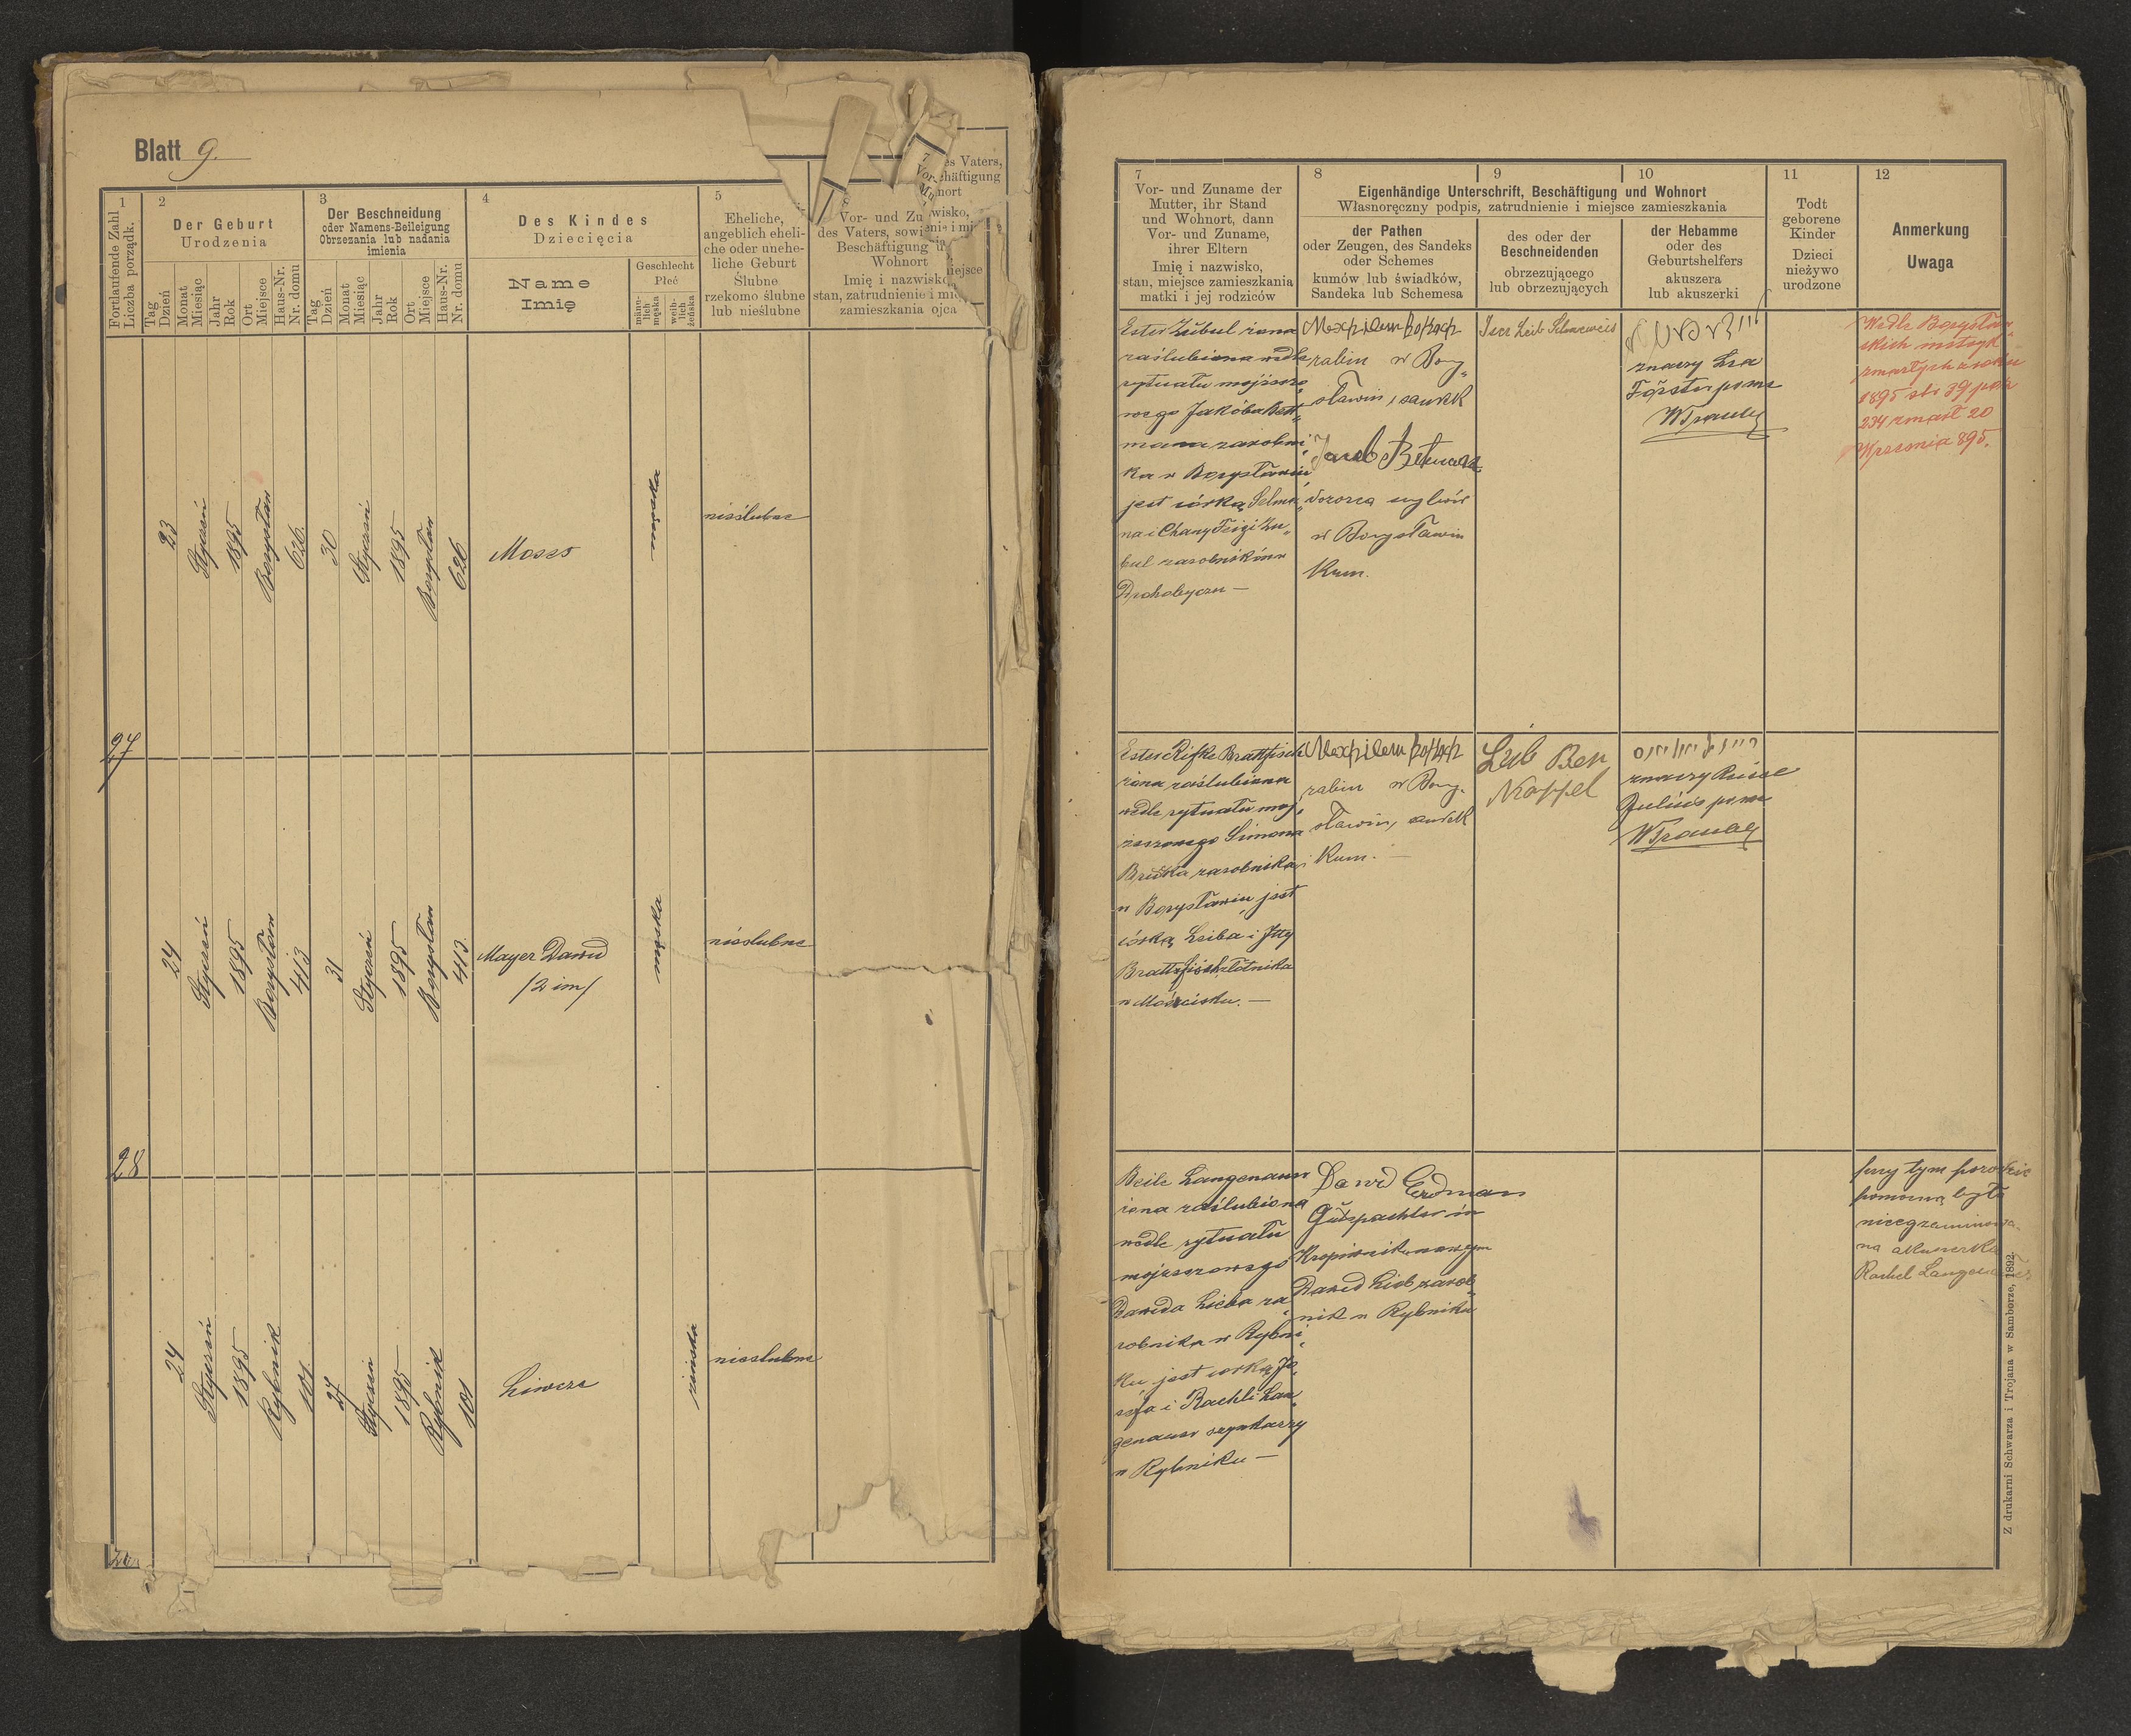 Blatt 9.
1
Fortlaufende Zahl
Liczba porządk.
2
Der Geburt
Urodzenia
Tag
Dzień
Monat
Miesiąc
Jahr
Rok
Ort
Miejsce
Haus-Nr.
Nr. domu
3
Der Beschneidung
oder Namens-Beilegung
Obrzezania lub nadania
imienia
Tag
Dzień
Monat
Miesiąc
Jahr
Rok
Ort
Miejsce
Haus-Nr.
Nr. domu
4
Des Kindes
Dziecięcia
Name
Imię
Geschlecht
Płeć
männ-
lich
męska
weib-
lich
żeńska
5
Eheliche,
angeblich eheli-
che oder unehe-
liche Geburt
Ślubne
rzekomo ślubne
lub nieślubne
Vor- und Zu
des Vaters, sowi
Beschäftigung
Wohnort
Imię i nazwisko
stan, zatrudnienie i
zamieszkania ojca
es Vaters,
häftigung
nort
wisko,
iejsce
27
23
Styczeń
1895
Borysław
626.
30
Styczeń
1895
Borysław
626
Moses
męska
nieślubne
28
24
Styczeń
1895
Borysław
413
31
Styczeń
1895
Borysław
413.
Mayer Dawid
/2 im/
męska
nieślubne
24
Styczeń
1895
Rybnik
101.
27
Styczeń
1895
Rybnik
101
żeńska
nieslubne
7
Vor- und Zuname der
Mutter, ihr Stand
und Wohnort, dann
Vor- und Zuname,
ihrer Eltern
Imię i nazwisko,
stan, miejsce zamieszkania
matki i jej rodziców
8
9
10
Eigenhändige Unterschrift, Beschäftigung und Wohnort
Własnoręczny podpis, zatrudnienie i miejsce zamieszkania
der Pathen
oder Zeugen, des Sandeks
oder Schemes
kumów lub świadków,
Sandeka lub Schemesa
des oder der
Beschneidenden
obrzezującego
lub obrzezujących
der Hebamme
oder des
Geburtshelfers
akuszera
lub akuszerki
11
Todt
geborene
Kinder
Dzieci
nieżywo
urodzone
12
Anmerkung
Uwaga
Ester Zubul żona
zaślubiona wedle
rytuału mojżeszo
wego Jakóba Bett
mana zarobni
ka w Borysławiu
jest córką Selma
na i Chany Feigi Zu
bul zarobników w
Drohobyczu —
rabin w Bory
sławiu, sandek
dozorca
w Borysławiu
Kum.
znaczy Lea
Förster pr mr
Wedle Borysław
skich metryk
zmarłych z roku
1895 str 39 poz
234 zmarł 20
Września 895.
Ester Rifke Brattfisch
żona zaślubiona
wedle rytuału moj
żeszowego Simona
zarobnika
w Borysławiu jest
córką Leiba i Itty
Brattfisch
w Mościsku. —
rabin w Bory
sławiu, sandek
i Kum. —
Leib Ben
Koppel
znaczy
pr mr
Beile Langenauer
żona zaślubiona
wedle rytuału
mojżeszowego
Dawida Lieba za
robnika w Rybni
ku jest córką Jó
zefa i Rachli Lan
genauer szynkarzy
w Rybniku —
Dawid Erdman
Gutspachter in
Kropiwniku nowym
Dawid Lieb zarob
nik w Rybniku
przy tym porodzie
pomocną była
nieegzaminowa
na akuszerka
Rachel
Z drukarni Schwarza i Trojana w Samborze, 1892.